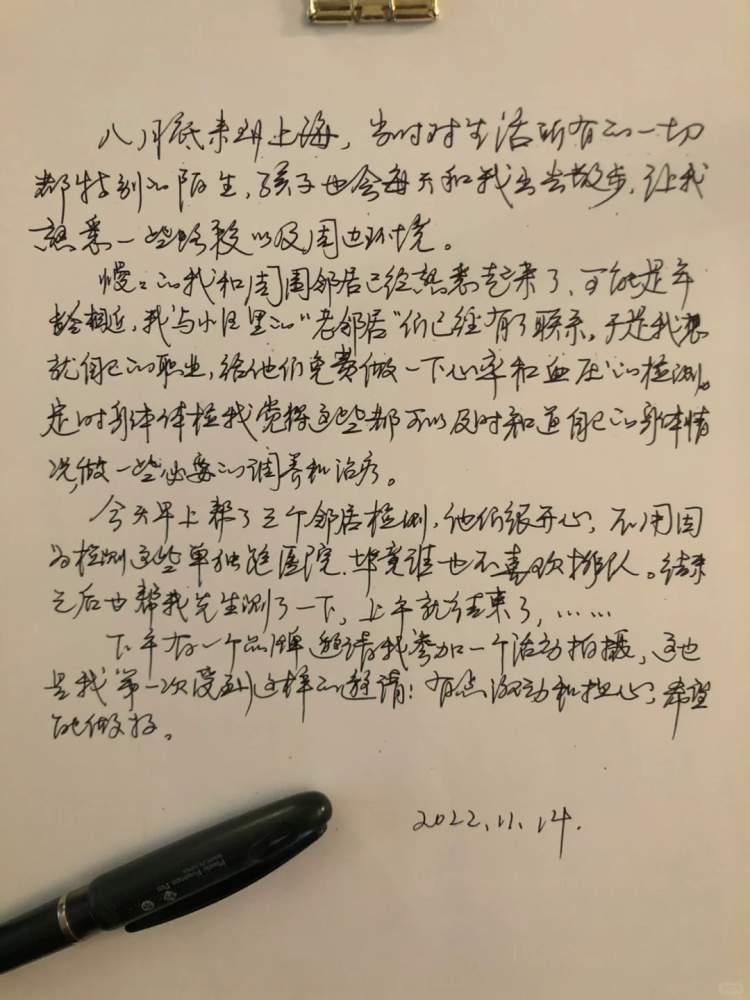 八月底来到上海，当时对生活所有的一切
都特别的陌生，孩子也会每天和我出去散步，让我
熟悉一些路段以及周边环境。
慢慢的我和周围邻居已经熟悉起来了，可能是年
龄相近，我与小区里的“老邻居”们已经有了联系。于是我想
就自己的职业，给他们免费做一下心率和血压的检测。
定时身体体检我觉得这些都可以及时知道自己的身体情
况，做一些必要的调养和治疗。
今天早上帮了三个邻居检测，他们很开心，不用因
为检测这些单独跑医院．毕竟谁也不喜欢排队。结束
之后也帮我先生测了一下，上午就结束了，……
下午有一个品牌邀请我参加一个活动拍摄，这也
是我第一次受到这样的邀请！有点激动和担心，希望
能做好。
2022.11.14.
Plastic Fountain Pen